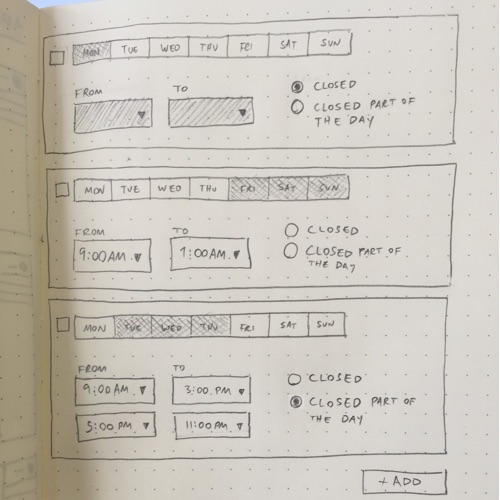 MON TUE WED THU FRI SAT SUN
FROM TO
CLOSED
CLOSED PART OF
THE DAY
MON TUE WED THU FRI SAT SUN
FROM TO
9:00AM. 1:00AM.
CLOSED
CLOSED PART OF
THE DAY
MON TUE WED THU FRI SAT SUN
FROM TO
9:00AM. 3:00.PM
5:00 PM 11:00PM.
CLOSED
CLOSED PART OF
THE DAY
+ ADD